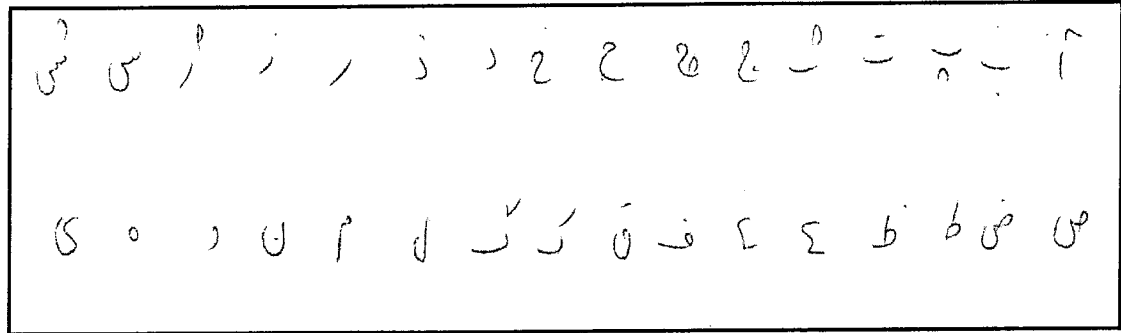 آ ب پ ت ث ج چ ح خ د ذ ر ز ژ س ش
ص ض ط ظ ع غ ف ق ک گ ل م ن و ه ی